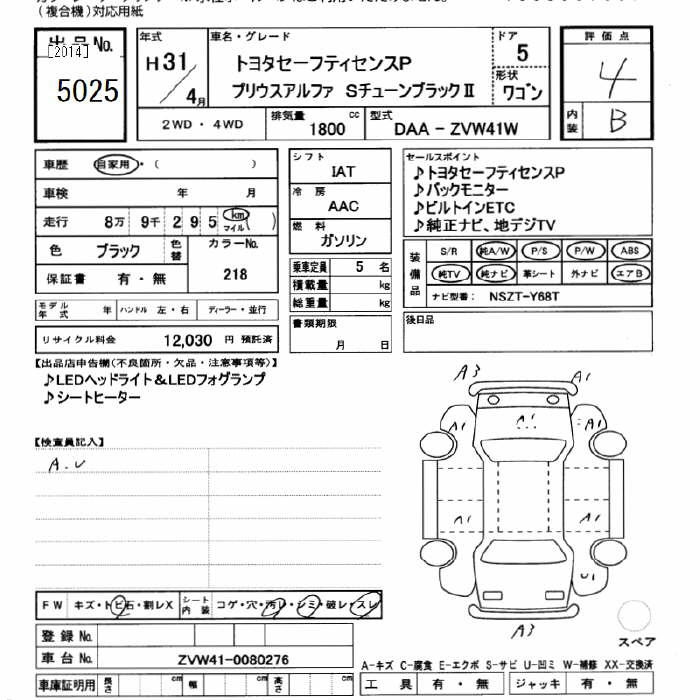 (複合機)対応用紙
出品No.
[2014]
5025
年式
H31/4月
車名・グレード
トヨタセーフティセンスP
プリウスアルファ SチューンブラックⅡ
ドア
5
形状
ワゴン
評価点
4
内装
B
2WD・4WD
排気量
1800 cc
型式
DAA-ZVW41W
車歴
自家用・( )
車検 年 月
走行 8万 9千 2 9 5 km マイル ( )
色 ブラック
色替
カラーNo.
218
保証書 有・無
シフト
IAT
冷房
AAC
燃料
ガソリン
乗車定員 5 名
積載量 kg
総重量 kg
書類期限
月 日
セールスポイント
♪トヨタセーフティセンスP
♪バックモニター
♪ビルトインETC
♪純正ナビ、地デジTV
装備品
S/R 純A/W P/S P/W ABS
純TV 純ナビ 革シート 外ナビ エアB
ナビ型番: NSZT-Y68T
後日品
モデル年式 年
ハンドル 左・右
ディーラー・並行
リサイクル料金 12,030 円 預託済
【出品店申告欄(不良箇所・欠品・注意事項等)】
♪LEDヘッドライト&LEDフォグランプ
♪シートヒーター
【検査員記入】
A.U
A3
A1
A1
A1
A1
A1
A1
U1
A3
スペア
FW キズ・トビ石・割レX
シート内装
コゲ・穴・汚レ・シミ・破レ・スレ
登録No.
車台No. ZVW41-0080276
車庫証明用 長さ cm 幅 cm 高さ cm
A-キズ C-腐食 E-エクボ S-サビ U-凹ミ W-補修 XX-交換済
工具 有・無 ジャッキ 有・無